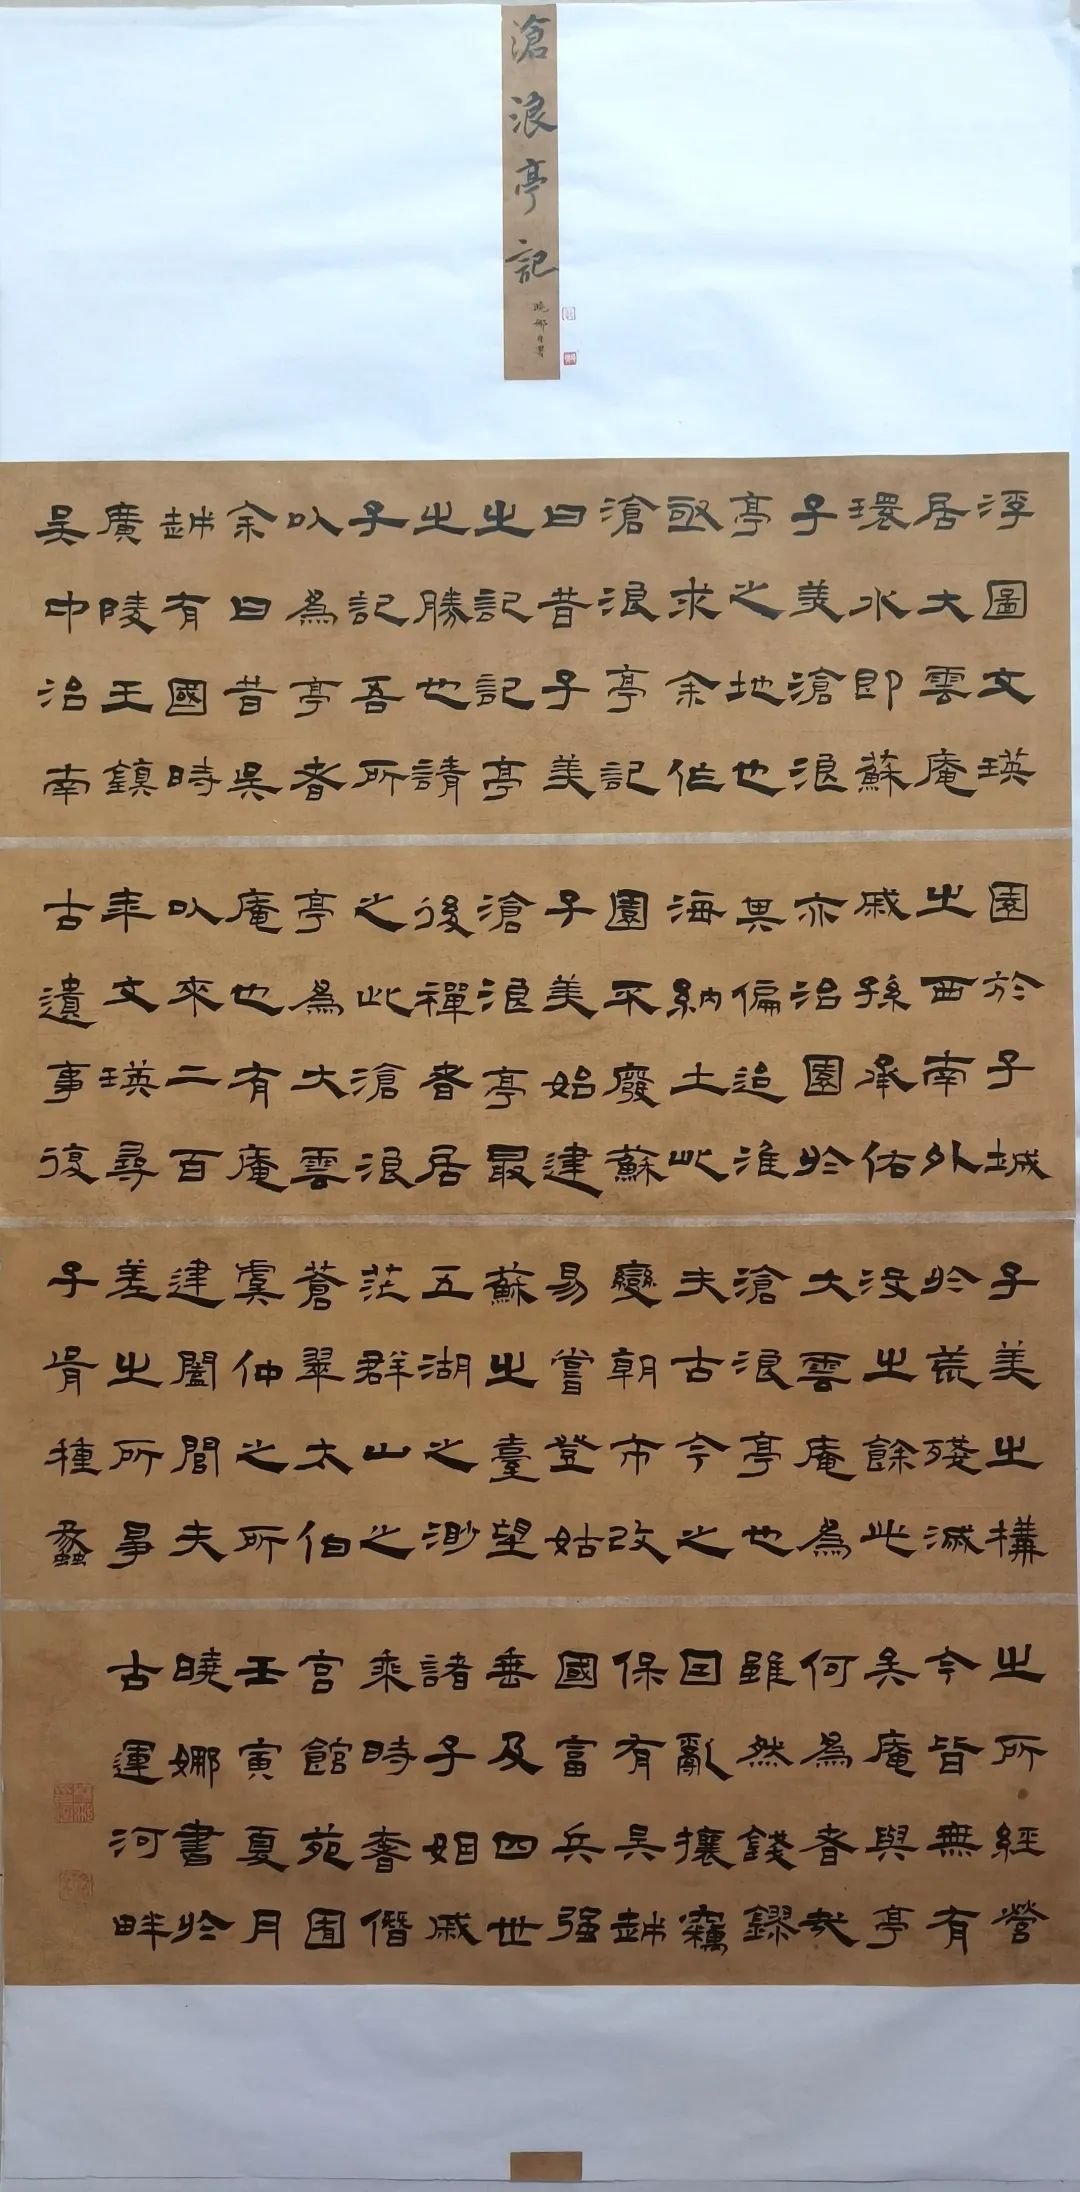 滄浪亭記
曉娜自署
浮圖文瑛
居大雲庵
環水即蘇
子美滄浪
亭之地也
亟求余作
滄浪亭記
曰昔子美
之記記亭
之勝也請
子記吾所
以為亭者
余曰昔吳
越有國時
廣陵王鎮
吳中治南
園於子城
之西南外
戚孫承佑
亦治園於
其偏迨淮
海納土此
園不廢蘇
子美始建
滄浪亭最
後禪者居
之此滄浪
亭為大雲
庵也有庵
以來二百
年文瑛尋
古遺事復
子美之構
於荒殘滅
沒之餘此
大雲庵為
滄浪亭也
夫古今之
變朝市改
易嘗登姑
蘇之臺望
五湖之渺
茫群山之
蒼翠太伯
虞仲之所
建闔閭夫
差之所爭
子胥種蠡
之所經營
今皆無有
矣庵與亭
何為者哉
雖然錢鏐
因亂攘竊
保有吳越
國富兵强
垂及四世
諸子姻戚
乘時奢僭
宮館苑囿
壬寅夏月
曉娜書於
古運河畔